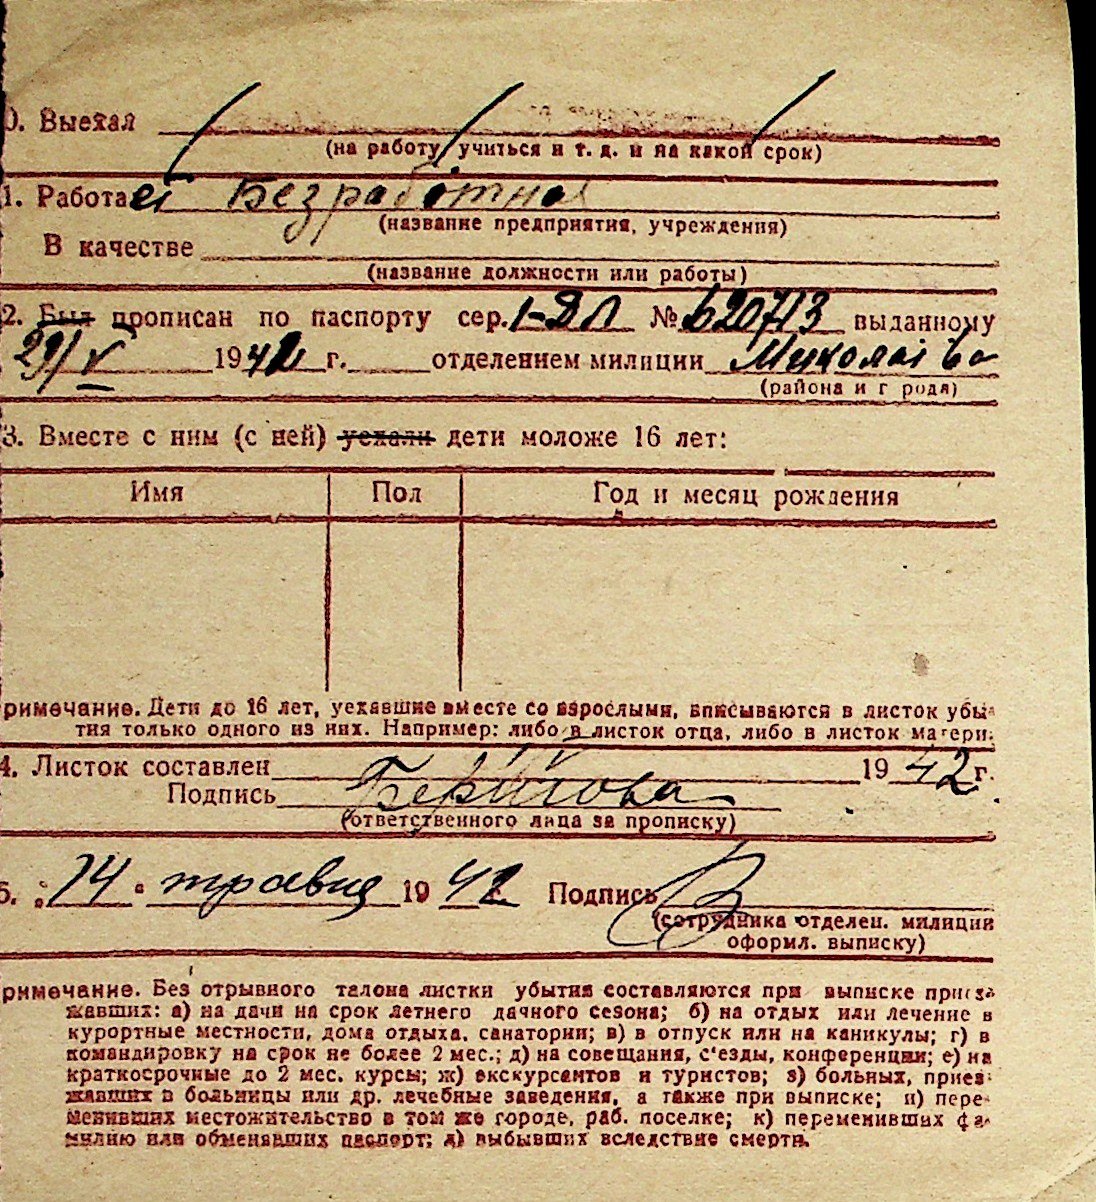 0. Выехал
(на работу, учиться и т. д. и на какой срок)
1. Работает Безработная
(название предприятия, учреждения)
В качестве
(название должности или работы)
2. Был прописан по паспорту сер. I-ДЛ № 620713 выданному
29/V 1942 г. отделением милиции Миколаїва
(района и г рода)
3. Вместе с ним (с ней) уехали дети моложе 16 лет:
Имя Пол Год и месяц рождения
римечание. Дети до 16 лет, уехавшие вместе со взрослыми, вписываются в листок убы-
тия только одного из них. Например: либо в листок отца, либо в листок матери.
4. Листок составлен 1942 г.
Подпись
(ответственного лица за прописку)
5. „14" травня 1942 г. Подпись
(сотрудника отделен. милиции
оформл. выписку)
римечание. Без отрывного талона листки убытия составляются при выписке приез-
жавших: а) на дачи на срок летнего дачного сезона; б) на отдых или лечение в
курортные местности, дома отдыха, санатории; в) в отпуск или на каникулы; г) в
командировку на срок не более 2 мес.; д) на совещания, с'езды, конференции; е) на
краткосрочные до 2 мес. курсы; ж) экскурсантов и туристов; з) больных, приез-
жавших в больницы или др. лечебные заведения, а также при выписке; и) пере-
менивших местожительство в том же городе, раб. поселке; к) переменивших фа-
милию или обменявших паспорт; л) выбывших вследствие смерти.